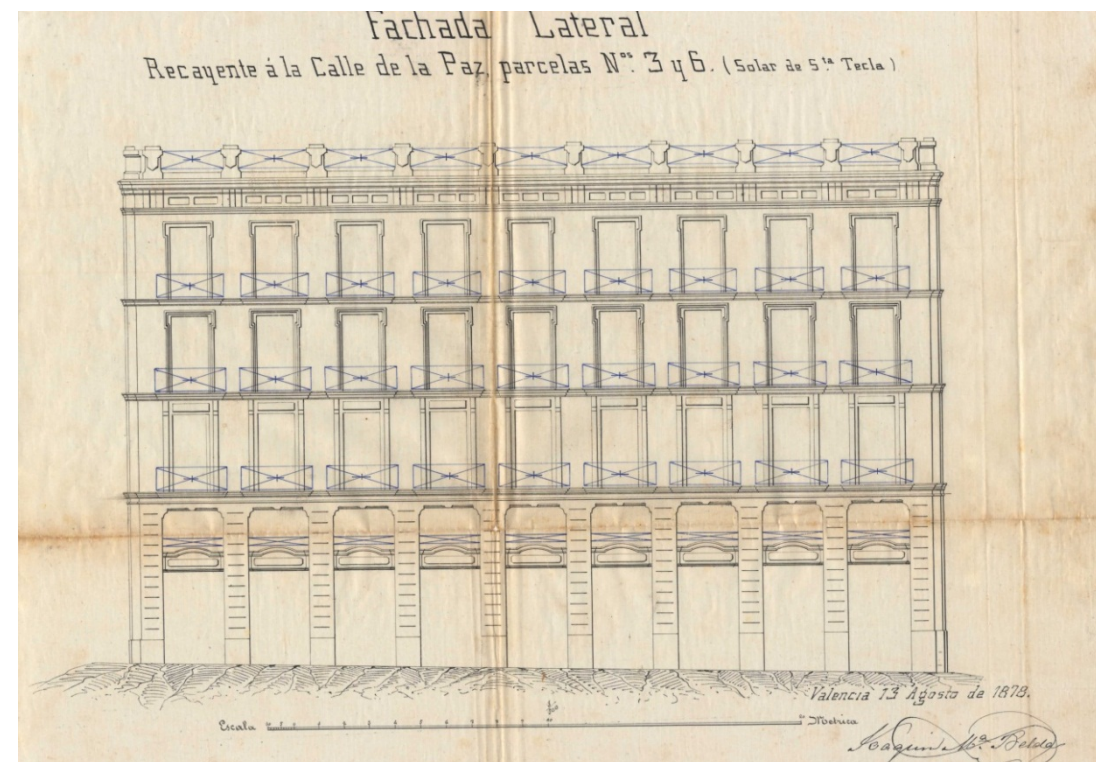 Fachada Lateral
Recayente á la Calle de la Paz, parcelas Nos. 3 y 6. (Solar de Sta Tecla)
Valencia 13 Agosto de 1878.
Escala Metrica
Joaquin Mª Belda